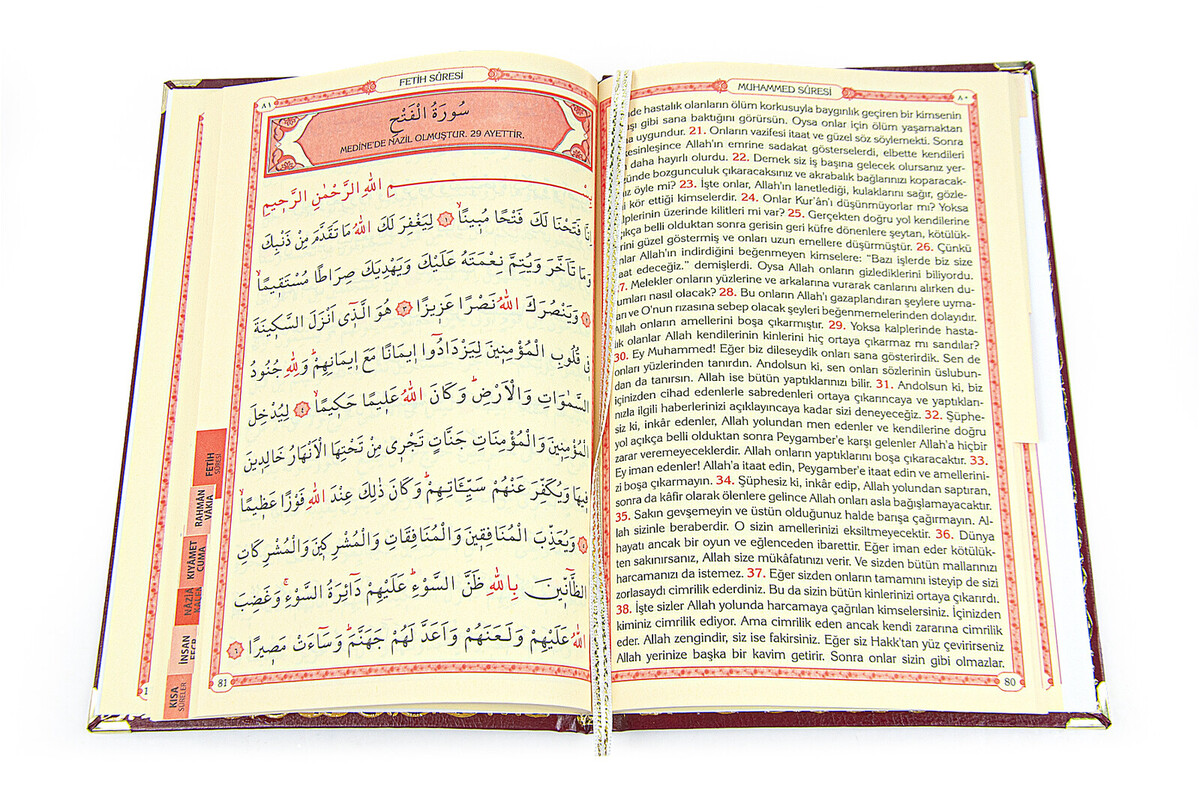 MUHAMMED SÛRESİ
٨٠
de hastalık olanların ölüm korkusuyla baygınlık geçiren bir kimsenin
gibi sana baktığını görürsün. Oysa onlar için ölüm yaşamaktan
uygundur. 21. Onların vazifesi itaat ve güzel söz söylemekti. Sonra
kesinleşince Allah'ın emrine sadakat gösterselerdi, elbette kendileri
daha hayırlı olurdu. 22. Demek siz iş başına gelecek olursanız yer-
zünde bozgunculuk çıkaracaksınız ve akrabalık bağlarınızı koparacak-
öyle mi? 23. İşte onlar, Allah'ın lanetlediği, kulaklarını sağır, gözle-
kör ettiği kimselerdir. 24. Onlar Kur'ân'ı düşünmüyorlar mı? Yoksa
kalplerinin üzerinde kilitleri mi var? 25. Gerçekten doğru yol kendilerine
açıkça belli olduktan sonra gerisin geri küfre dönenlere şeytan, kötülük-
rini güzel göstermiş ve onları uzun emellere düşürmüştür. 26. Çünkü
onlar Allah'ın indirdiğini beğenmeyen kimselere: "Bazı işlerde biz size
itaat edeceğiz." demişlerdi. Oysa Allah onların gizlediklerini biliyordu.
27. Melekler onların yüzlerine ve arkalarına vurarak canlarını alırken du-
rumları nasıl olacak? 28. Bu onların Allah'ı gazaplandıran şeylere uyma-
ları ve O'nun rızasına sebep olacak şeyleri beğenmemelerinden dolayıdır.
Allah onların amellerini boşa çıkarmıştır. 29. Yoksa kalplerinde hasta-
lık olanlar Allah kendilerinin kinlerini hiç ortaya çıkarmaz mı sandılar?
30. Ey Muhammed! Eğer biz dileseydik onları sana gösterirdik. Sen de
onları yüzlerinden tanırdın. Andolsun ki, sen onları sözlerinin üslubun-
dan da tanırsın. Allah ise bütün yaptıklarınızı bilir. 31. Andolsun ki, biz
içinizden cihad edenlerle sabredenleri ortaya çıkarıncaya ve yaptıkları-
nızla ilgili haberlerinizi açıklayıncaya kadar sizi deneyeceğiz. 32. Şüphe-
siz ki, inkâr edenler, Allah yolundan men edenler ve kendilerine doğru
yol açıkça belli olduktan sonra Peygamber'e karşı gelenler Allah'a hiçbir
zarar veremeyeceklerdir. Allah onların yaptıklarını boşa çıkaracaktır. 33.
Ey iman edenler! Allah'a itaat edin, Peygamber'e itaat edin ve amellerini-
zi boşa çıkarmayın. 34. Şüphesiz ki, inkâr edip, Allah yolundan saptıran,
sonra da kâfir olarak ölenlere gelince Allah onları asla bağışlamayacaktır.
35. Sakın gevşemeyin ve üstün olduğunuz halde barışa çağırmayın. Al-
lah sizinle beraberdir. O sizin amellerinizi eksiltmeyecektir. 36. Dünya
hayatı ancak bir oyun ve eğlenceden ibarettir. Eğer iman eder kötülük-
ten sakınırsanız, Allah size mükâfatınızı verir. Ve sizden bütün mallarınızı
harcamanızı da istemez. 37. Eğer sizden onların tamamını isteyip de sizi
zorlasaydı cimrilik ederdiniz. Bu da sizin bütün kinlerinizi ortaya çıkarırdı.
38. İşte sizler Allah yolunda harcamaya çağrılan kimselersiniz. İçinizden
kiminiz cimrilik ediyor. Ama cimrilik eden ancak kendi zararına cimrilik
eder. Allah zengindir, siz ise fakirsiniz. Eğer siz Hakk'tan yüz çevirirseniz
Allah yerinize başka bir kavim getirir. Sonra onlar sizin gibi olmazlar.
80
FETİH SÛRESİ
٨١
سُورَةُ الْفَتْحِ
MEDİNE'DE NAZİL OLMUŞTUR. 29 AYETTİR.
بِسْمِ اللّٰهِ الرَّحْمٰنِ الرَّح۪يمِ
اِنَّا فَتَحْنَا لَكَ فَتْحًا مُب۪ينًاۙ ﴿١﴾ لِيَغْفِرَ لَكَ اللّٰهُ مَا تَقَدَّمَ مِنْ ذَنْبِكَ
وَمَا تَاَخَّرَ وَيُتِمَّ نِعْمَتَهُ عَلَيْكَ وَيَهْدِيَكَ صِرَاطًا مُسْتَق۪يمًاۙ
﴿٢﴾ وَيَنْصُرَكَ اللّٰهُ نَصْرًا عَز۪يزًا ﴿٣﴾ هُوَ الَّذ۪ٓي اَنْزَلَ السَّك۪ينَةَ
ف۪ي قُلُوبِ الْمُؤْمِن۪ينَ لِيَزْدَادُٓوا ا۪يمَانًا مَعَ ا۪يمَانِهِمْۜ وَلِلّٰهِ جُنُودُ
السَّمٰوَاتِ وَالْاَرْضِۜ وَكَانَ اللّٰهُ عَل۪يمًا حَك۪يمًاۙ ﴿٤﴾ لِيُدْخِلَ
الْمُؤْمِن۪ينَ وَالْمُؤْمِنَاتِ جَنَّاتٍ تَجْر۪ي مِنْ تَحْتِهَا الْاَنْهَارُ خَالِد۪ينَ
ف۪يهَا وَيُكَفِّرَ عَنْهُمْ سَيِّـَٔاتِهِمْۜ وَكَانَ ذٰلِكَ عِنْدَ اللّٰهِ فَوْزًا عَظ۪يمًاۙ
﴿٥﴾ وَيُعَذِّبَ الْمُنَافِق۪ينَ وَالْمُنَافِقَاتِ وَالْمُشْرِك۪ينَ وَالْمُشْرِكَاتِ
الظَّٓانّ۪ينَ بِاللّٰهِ ظَنَّ السَّوْءِۜ عَلَيْهِمْ دَٓائِرَةُ السَّوْءِۚ وَغَضِبَ
اللّٰهُ عَلَيْهِمْ وَلَعَنَهُمْ وَاَعَدَّ لَهُمْ جَهَنَّمَۜ وَسَٓاءَتْ مَص۪يرًا ﴿٦﴾
81
FETİH
SÛRESİ
RAHMÂN
VÂKIA
KIYÂMET
CUMA
NÂZİÂ
İNSAN
KISA
SÛRELER